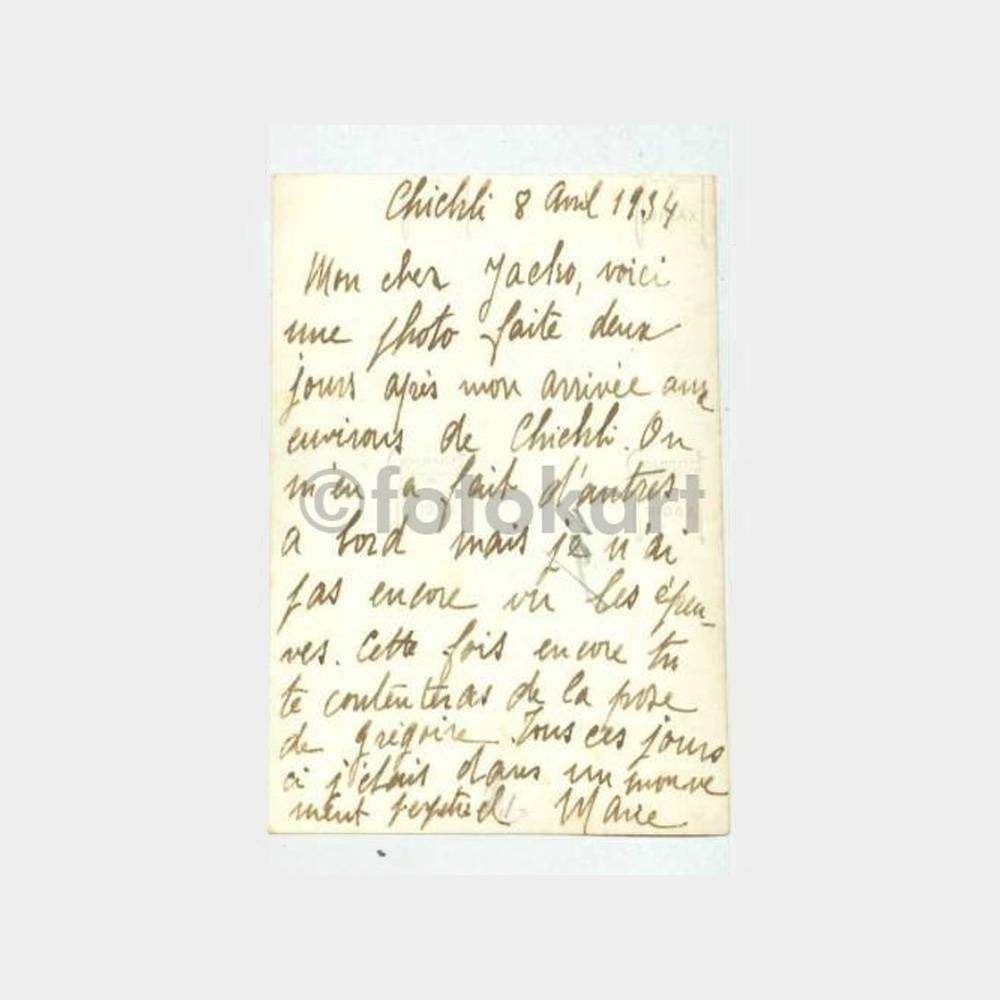 Chichli 8 Avril 1934
Mon cher Jacko, voici
une photo faite deux
jours après mon arrivée aux
environs de Chichli. On
m'en a fait d'autres
a bord mais je n'ai
pas encore vu les épreu-
ves. Cette fois encore tu
te contenteras de la pose
de grégoire. Tous ces jours
ci j'étais dans un mouve
ment perpétuel Marie
©fotokart